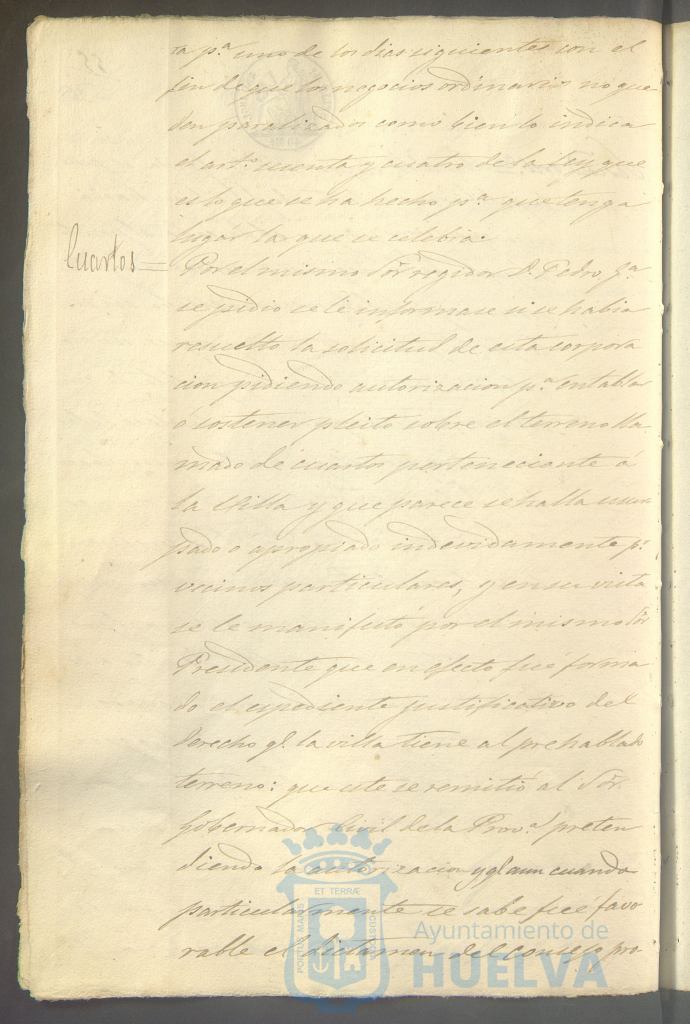 ra p.ª uno de los dias siguientes con el
fin de que los negocios ordinarios no que
den paralizados como bien lo indica
el art.º sesenta y cuatro de la ley, que
es lo que se ha hecho p.ª que tenga
lugar la que se celebra.
Cuartos = Por el mismo Sor regidor D. Pedro G.ª
se pidio se le informase si se habia
resuelto la solicitud de esta corpora
cion pidiendo autorizacion p.ª entablar
o sostener pleito sobre el terreno lla
mado de cuartos perteneciente á
la Villa y que parece se halla usur
pado o apropiado indevidamente p.r
vecinos particulares, y en su vista
se le manifestó por el mismo Sor
Presidente que en efecto fué forma
do el espediente justificativo del
derecho q.e la villa tiene al prehablado
terreno: que este se remitió al Sor.
Gobernador Civil de la Prov.ª preten
diendo la autorizacion y q.e aun cuando
particularmente se sabe fue favo
rable el dictamen del consejo pro
PORTUS MARIS ET TERRÆ CUSTODIA
Ayuntamiento de
HUELVA